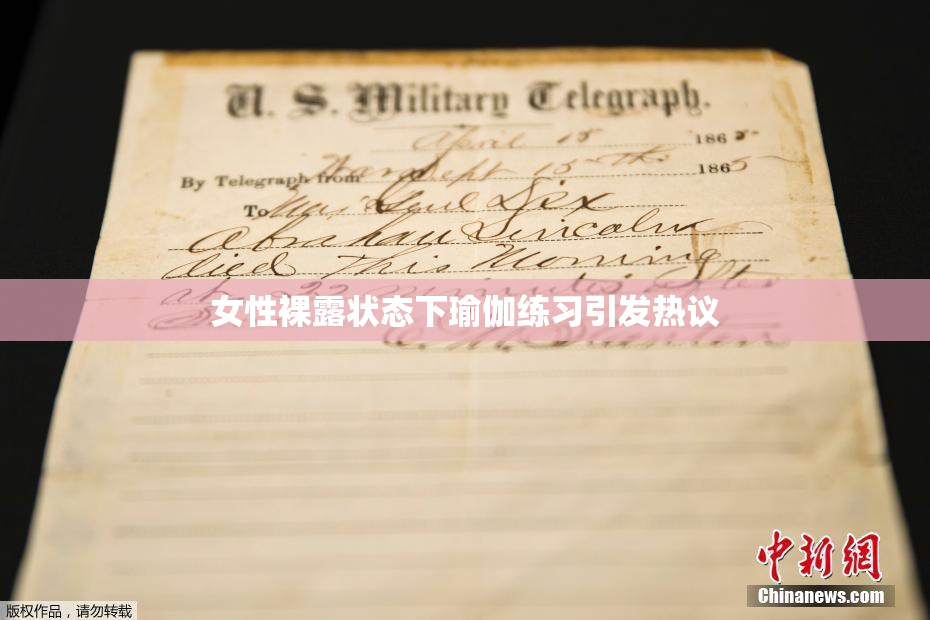 U. S. Military Telegraph.
April 15 1865
By Telegraph from War Dept 15th 1865
To Maj Genl Dix
Abraham Lincoln
died This Morning
at 22 minutes after
女性裸露状态下瑜伽练习引发热议
E. M. Stanton
中新网
Chinanews.com
版权作品，请勿转载